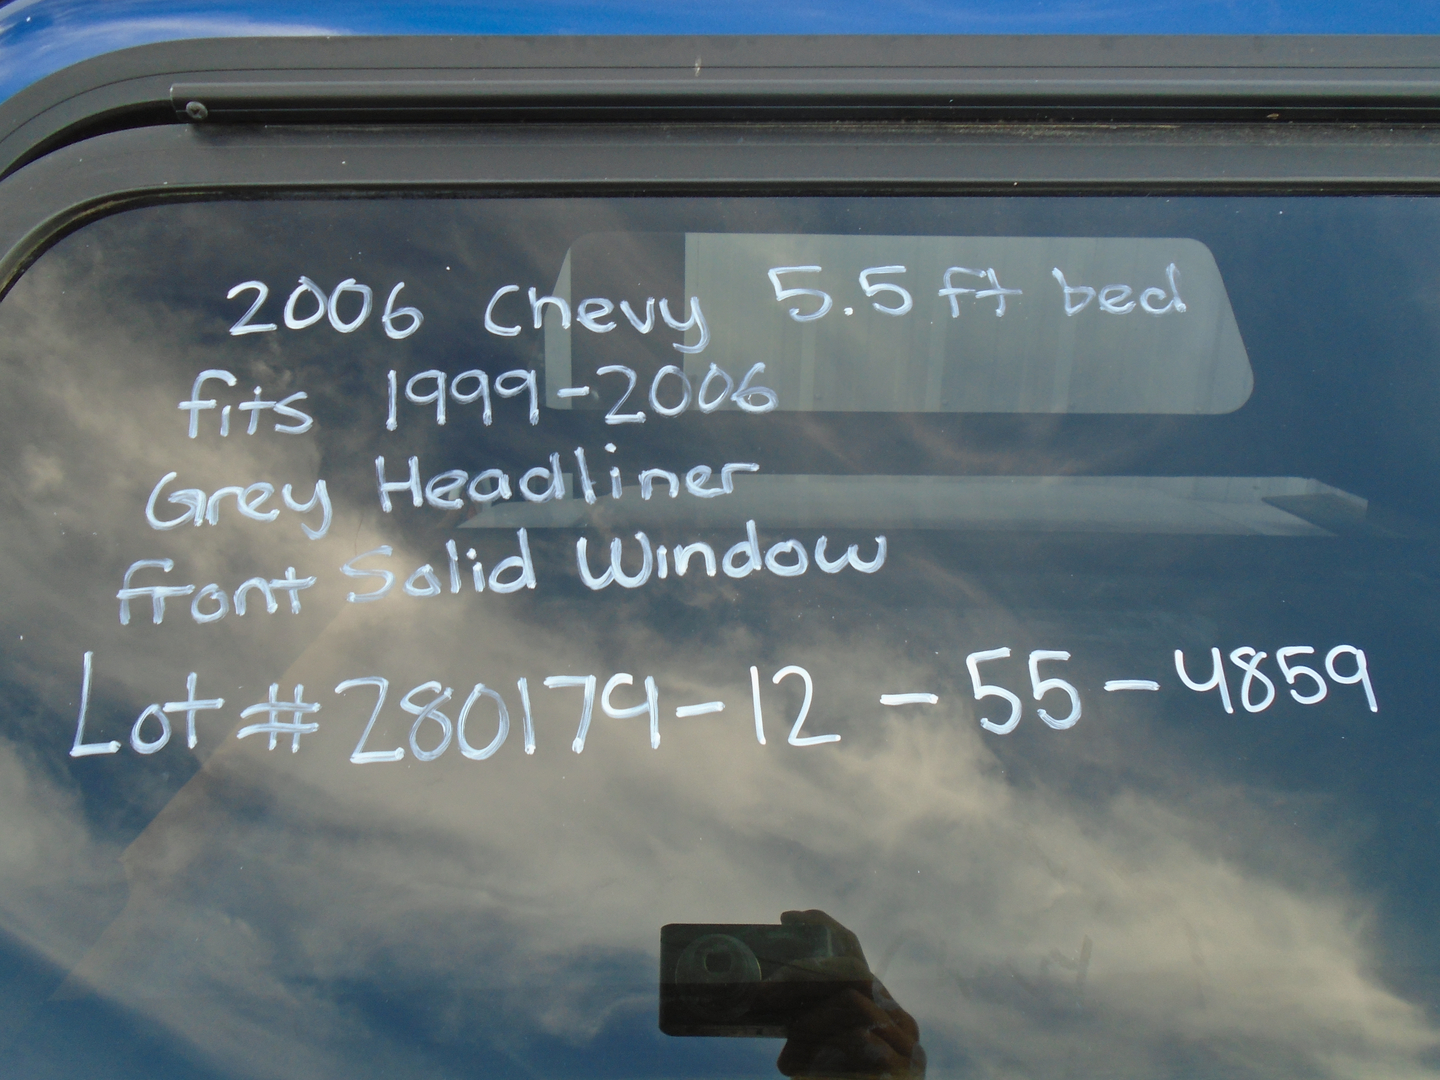 2006 Chevy 5.5 ft bed
fits 1999-2006
Grey Headliner
front Solid Window
Lot # 280179-12-55-4859